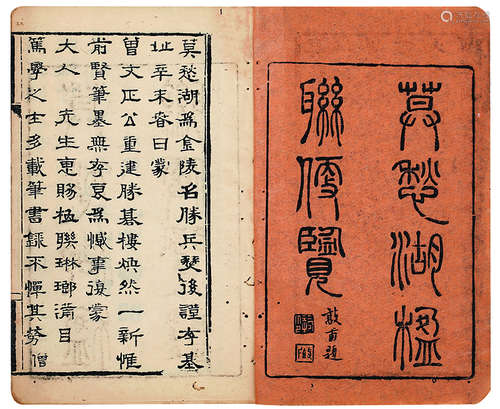 莫愁湖楹
聯便覽
甫題
莫愁湖爲金陵名勝兵燹後謹存基
址辛未春日蒙
曾文正公重建勝棊樓煥然一新惟
前賢筆墨無存良爲憾事復蒙
大人 先生惠賜楹聯琳瑯滿目
篤學之士多載筆書錄不憚其勞僧